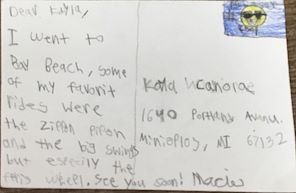 Dear Kayla,
I went to
Bay Beach, some
of my favorit
rides were
the Zippin Pippin
and the big swings
but especily the
ferris wheel. See you soon! Macie
Kayla
1640 Portland Avanu.
Minioplos, MI 67132